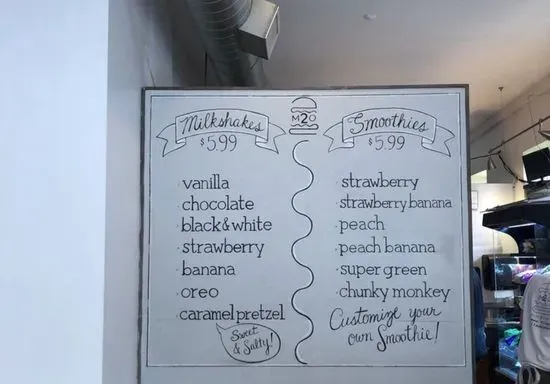 Milkshakes
$5.99
vanilla
chocolate
black & white
strawberry
banana
oreo
caramel pretzel
Sweet
& Salty!
M2O
Smoothies
$5.99
strawberry
strawberry banana
peach
peach banana
super green
chunky monkey
Customize your
own Smoothie!